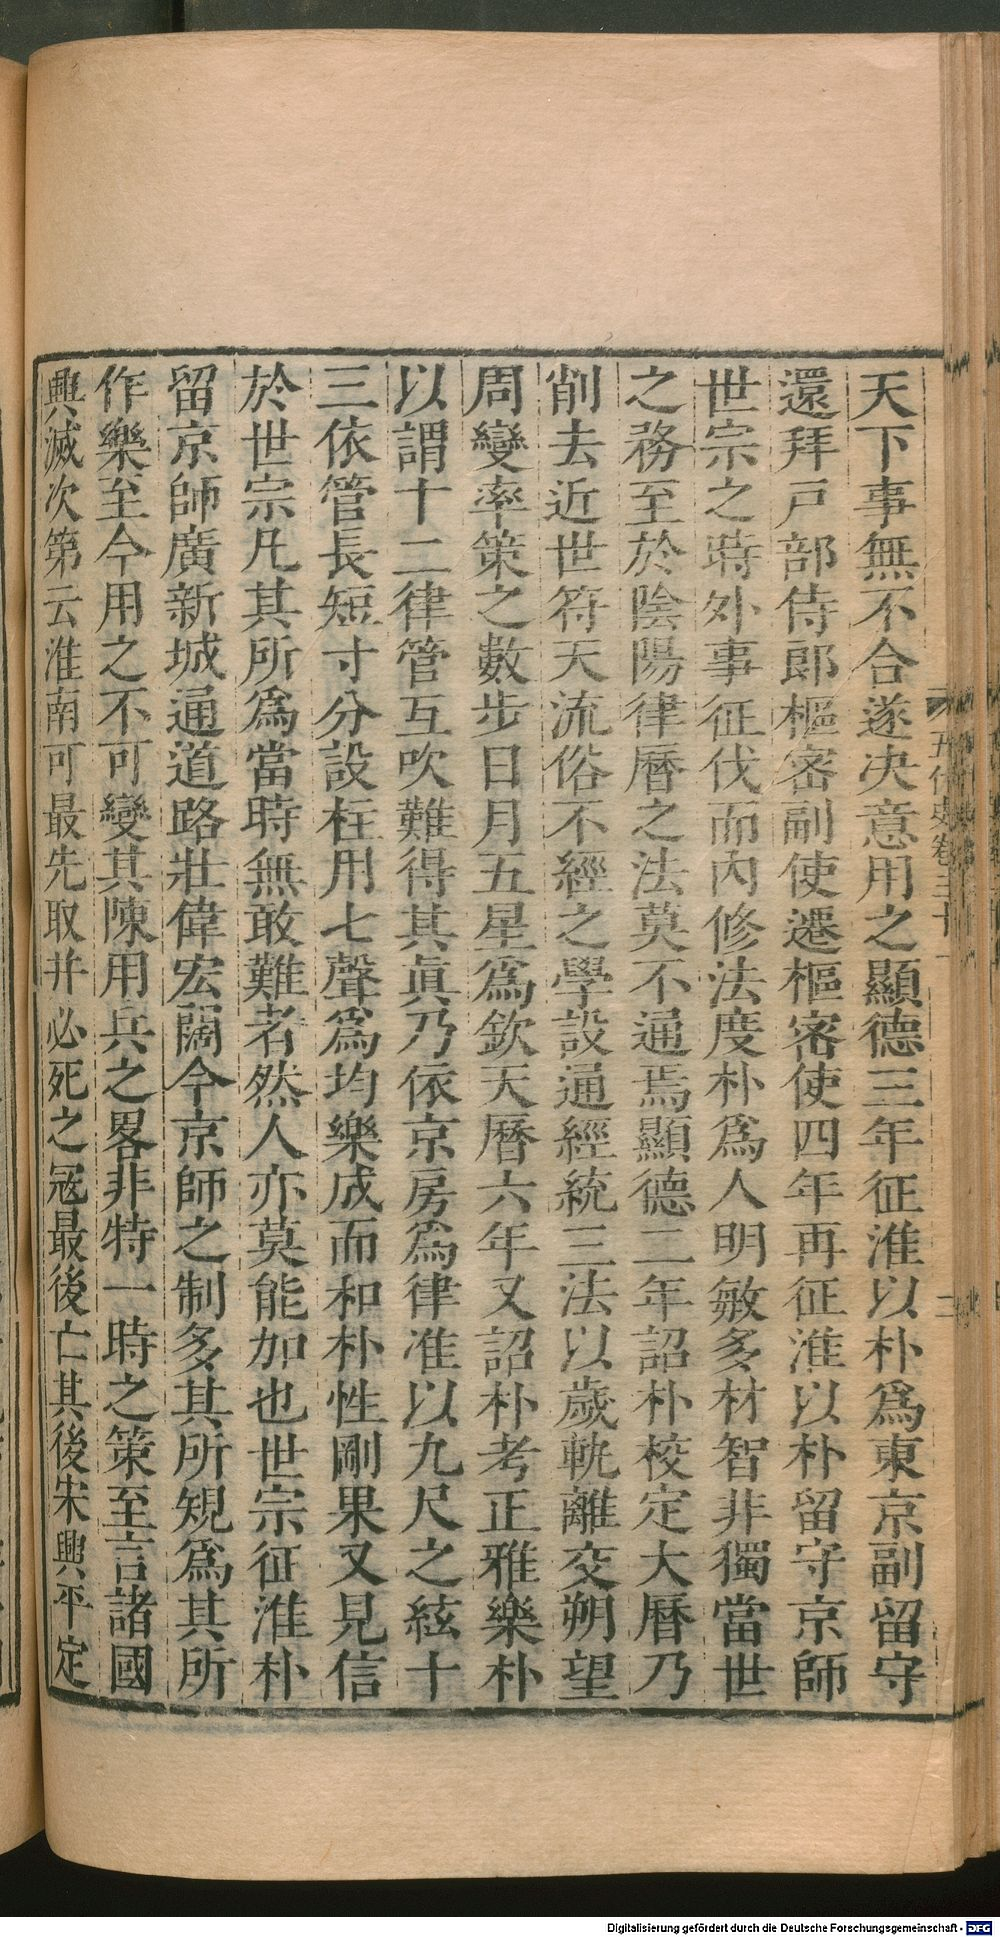 天下事無不合遂決意用之顯德三年征淮以朴爲東京副留守
還拜戸部侍郎樞密副使遷樞密使四年再征淮以朴留守京師
世宗之時外事征伐而內修法度朴爲人明敏多材智非獨當世
之務至於陰陽律曆之法莫不通焉顯德二年詔朴校定大曆乃
削去近世符天流俗不經之學設通經統三法以歲軌離交朔望
周變率策之數步日月五星爲欽天曆六年又詔朴考正雅樂朴
以謂十二律管互吹難得其眞乃依京房爲律准以九尺之絃十
三依管長短寸分設柱用七聲爲均樂成而和朴性剛果又見信
於世宗凡其所爲當時無敢難者然人亦莫能加也世宗征淮朴
留京師廣新城通道路壯偉宏闊今京師之制多其所規爲其所
作樂至今用之不可變其陳用兵之畧非特一時之策至言諸國
興滅次第云淮南可最先取并必死之寇最後亡其後宋興平定
五代史卷三十一
Digitalisierung gefördert durch die Deutsche Forschungsgemeinschaft - DFG